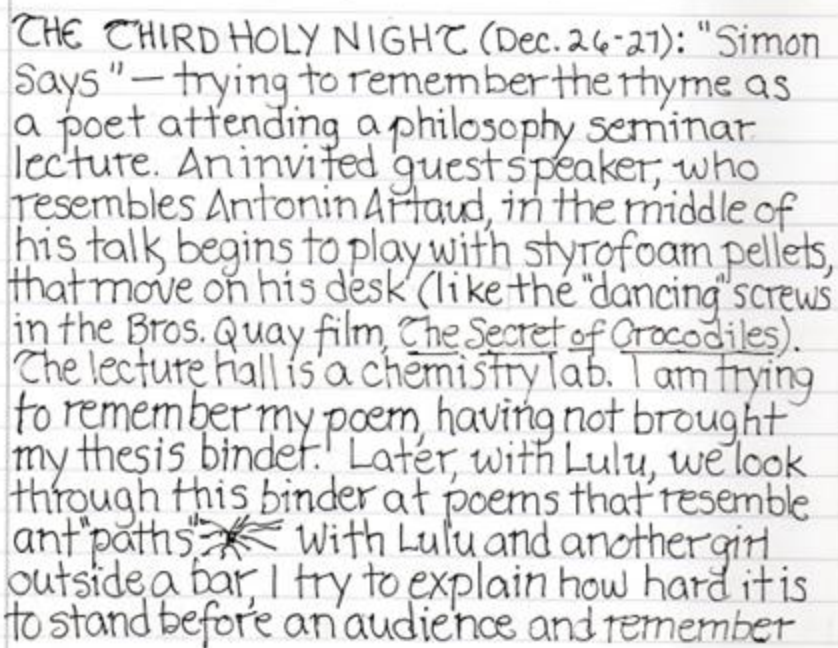 THE THIRD HOLY NIGHT (Dec. 26-27): "Simon
Says" — trying to remember the rhyme as
a poet attending a philosophy seminar
lecture. An invited guest speaker, who
resembles Antonin Artaud, in the middle of
his talk, begins to play with styrofoam pellets,
that move on his desk (like the "dancing" screws
in the Bros. Quay film, The Secret of Crocodiles).
The lecture hall is a chemistry lab. I am trying
to remember my poem, having not brought
my thesis binder. Later, with Lulu, we look
through this binder at poems that resemble
ant "paths" With Lulu and another girl
outside a bar, I try to explain how hard it is
to stand before an audience and remember